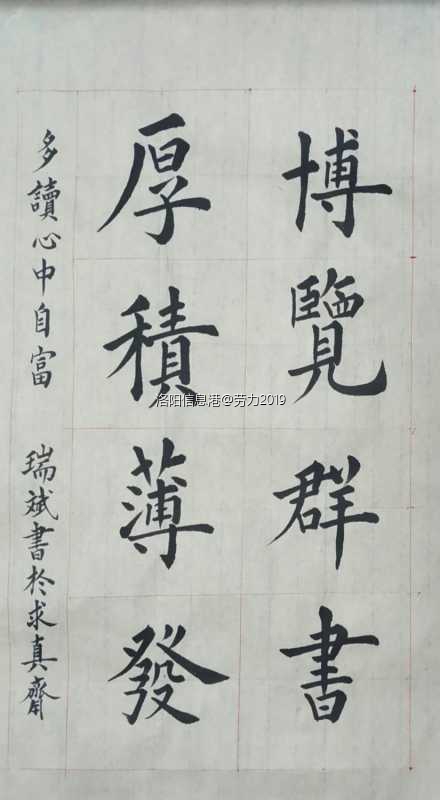 博覽群書
厚積薄發
多讀心中自富 瑞斌書於求真齋
洛阳信息港@劳力2019